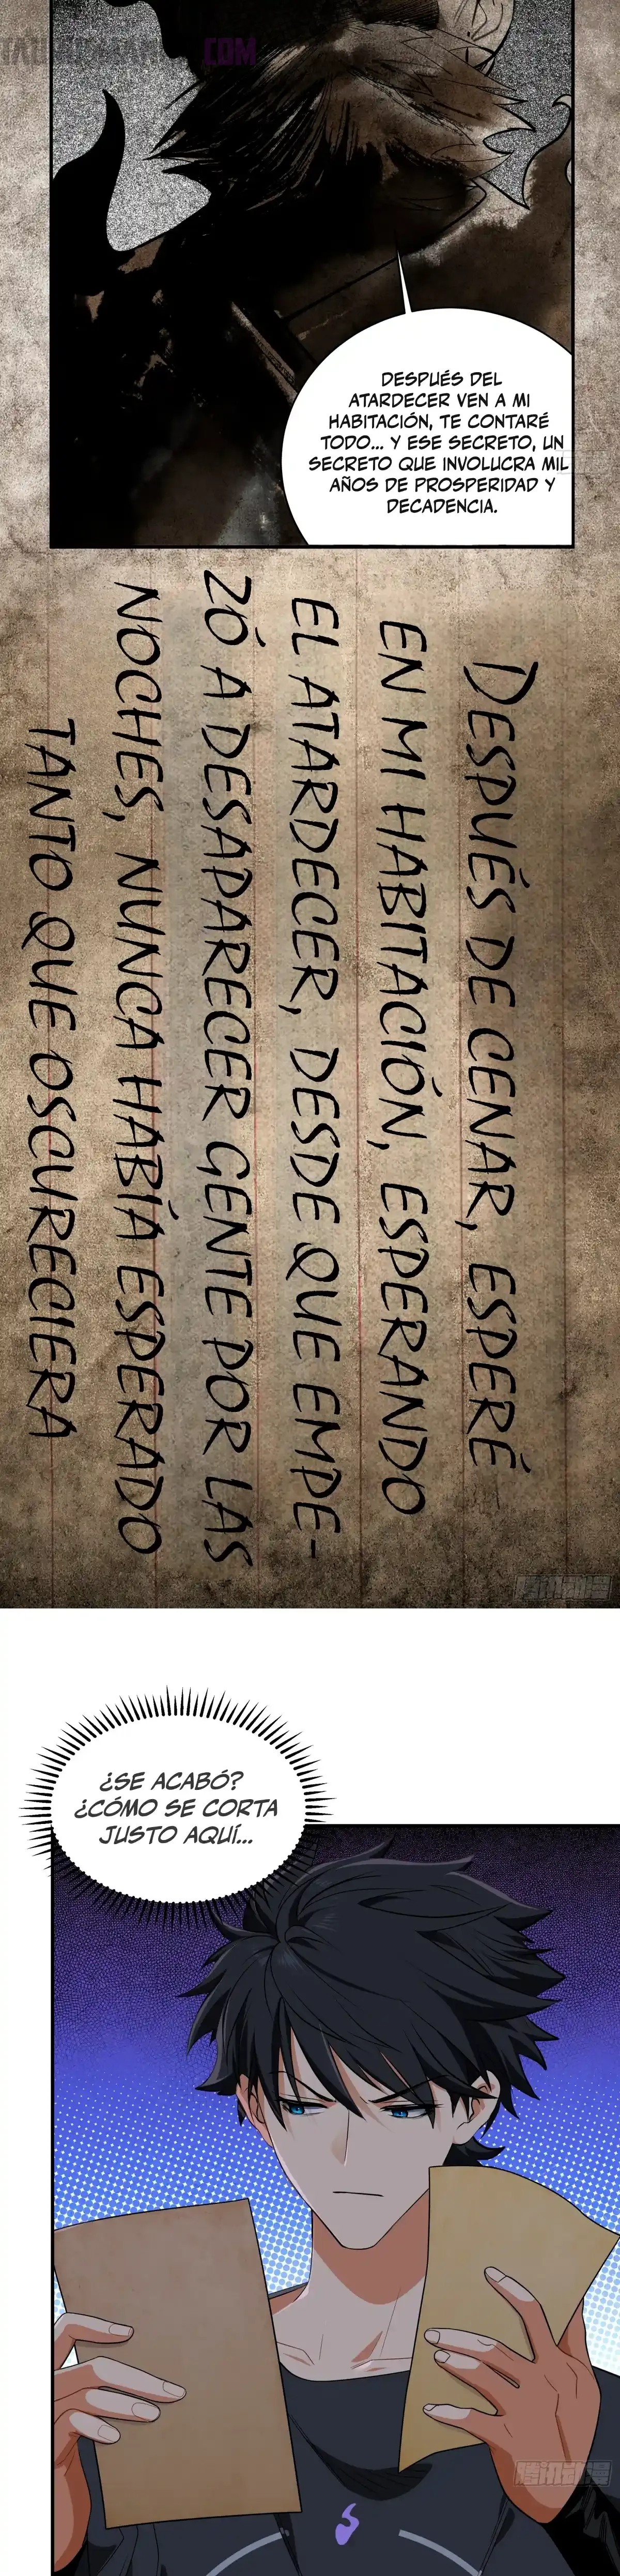 DESPUÉS DEL
ATARDECER VEN A MI
HABITACIÓN, TE CONTARÉ
TODO... Y ESE SECRETO, UN
SECRETO QUE INVOLUCRA MIL
AÑOS DE PROSPERIDAD Y
DECADENCIA.
DESPUÉS DE CENAR, ESPERÉ
EN MI HABITACIÓN, ESPERANDO
EL ATARDECER, DESDE QUE EMPE-
ZÓ A DESAPARECER GENTE POR LAS
NOCHES, NUNCA HABÍA ESPERADO
TANTO QUE OSCURECIERA
腾讯动漫
¿SE ACABÓ?
¿CÓMO SE CORTA
JUSTO AQUÍ...
腾讯动漫